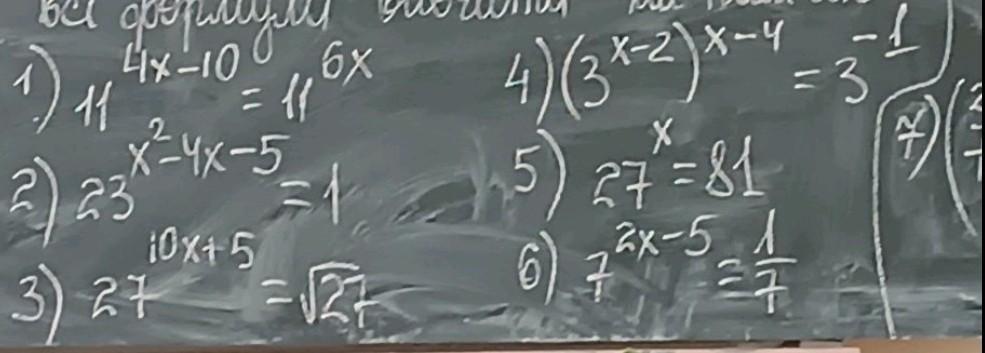 1) 11^{4x-10} = 11^{6x}
2) 23^{x^2-4x-5} = 1
3) 27^{10x+5} = √27
4) (3^{x-2})^{x-4} = 3^{-1}
5) 27^x = 81
6) 7^{2x-5} = 1/7
7) (